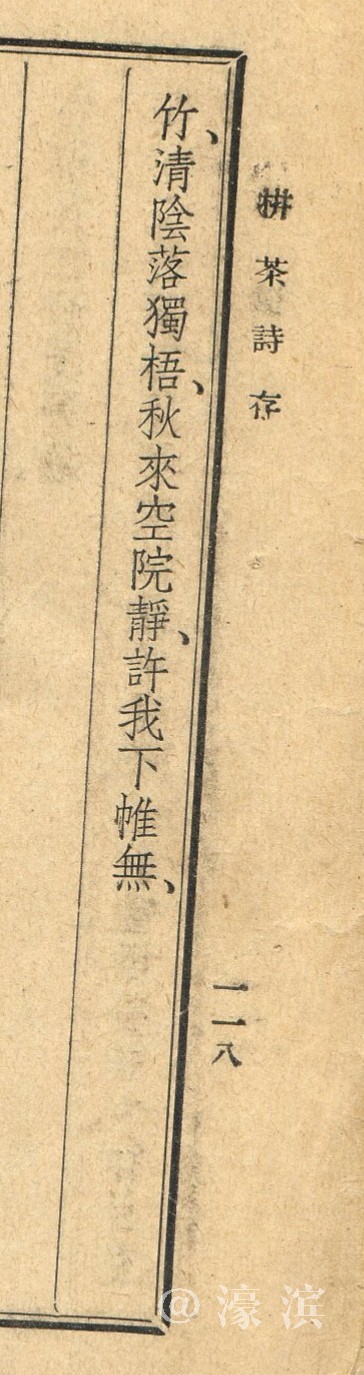 栟茶詩存
一一八
竹、清陰落獨梧、秋來空院靜、許我下帷無、
@濠滨